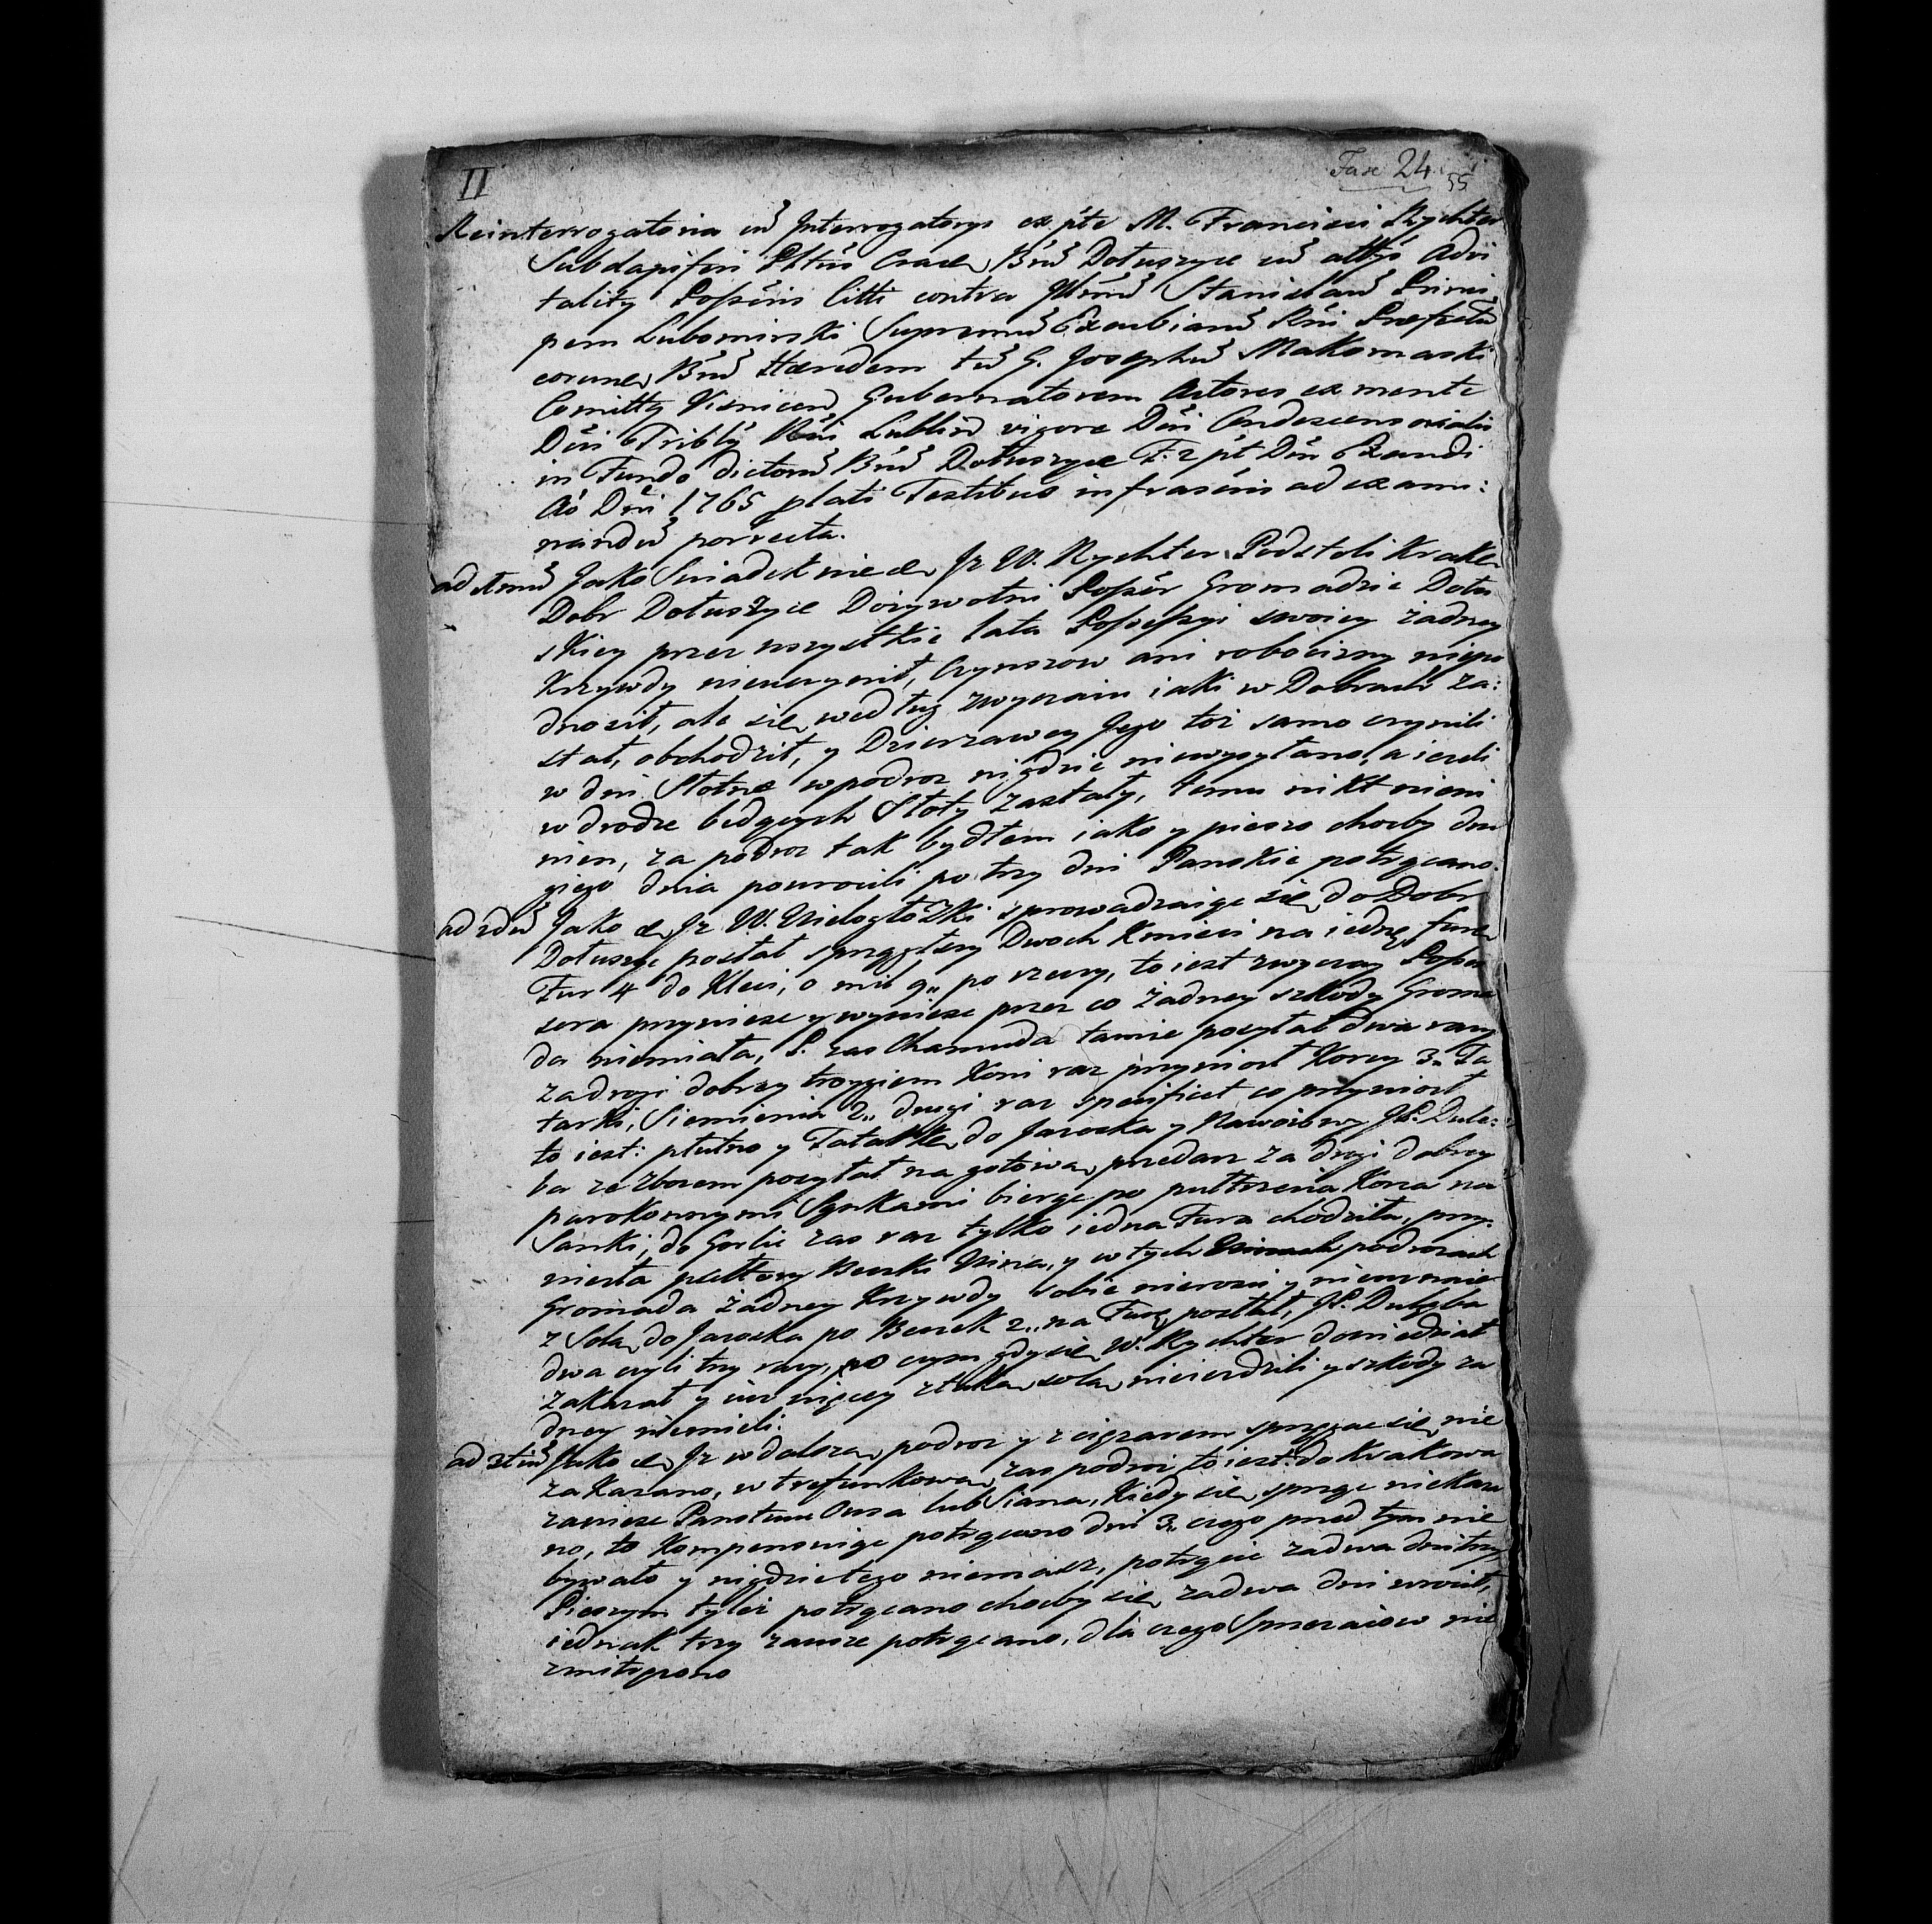 II
Fasc 24
55
Reinterrogatoria cu͠ Interrogatorys ex pte M. Francisci Rychter
Subdapiferi Pltus Crace, Bru͠ Dołuszyce cu͠ attys Advi
tality Possoris litti contra Illrmu͠ Stanislau͠ Princi
pem Lubomirski Supremu͠ Excubiaru͠ Rni Praefectu͠
corune, Bru͠ Haeredem tu͠ G. Josephu͠ Makomaski
Comitty Visnicen Gubernatorem Actores ex mente
Dcti Tribly Rni Lublin vigore Dcti Condescensorialis
in Fundo dictoru͠ Bru͠ Dołuszyce F. 2 pt Dni Exaudi
Ao Dni 1765 plati Testibus infrascris ad exami:
nandu͠ porrecta.
ad 1mu͠ Jako Swiadek wie, Jż W. Rychter Podstoli Krake
Dobr Dołuszyce Dożywotni Possor Gromadzie Dołu
skiey przez wszystkie lata Possessyi swoiey żadney
Krzywdy nieuczynił, Czynszow ani robocizny niepo
dnosił, ale się według zwyczaiu iaki w Dobrach za:
stał, obchodził, y Dzierzawcy Jego toż samo czynili
w dni Słotne w podroz nigdzie niewysyłano, a iezeli
w drodze będących Słoty zastały, temu nikt niewi
nien, za podroz tak bydłem iako y pieszo choćby dru
giego dnia powrocili po trzy dni Panskie potrącano.
ad 2du͠ Jako Jż W. Wielogłoski sprowadzaiąc się do Dobr
Dołuszyc posłał sprzężay Dwoch Kmieci na iedną furę
Fur 4 do Kleci, o mil 9 po rzeczy, to iest zwyczay Posse
sora przywieze y wywieze przez co żadney szkody Groma
da niemiała, P. zas Chamuda tamże posyłał dwa razy
za drogi dobrey troygiem Koni raz przywiozł Korcy 3 Ta
tarki, Siemienia 2 drugi raz specificet co przywiozł
to iest: płutno y Tatarkę do Jarosła y Nawoiowy JP. Dulę:
ba ze zborem posyłał na gotową przedarz za drogi dobrey
parokonnymi Sąkami biorąc po pułtrzecia Korca na
Sanki, do Gorlic zas raz tylko iedna Fura chodziła, przy
wiozła pułtory Beczki Wina, y w tych podrozach
Gromada żadney Krzywdy sobie nierosci y nieuznaie
z Solą do Jarosła po Beczek 2 na Furę posłał, JP. Dulęba
dwa czyli trzy razy, po czym gdy się W. Rychter dowiedział
zakazał y iuz więcey z taką solą niciezdzili y szkody za
dney niemieli.
ad 3tiu͠ Jako Jż w dalszą podroz y z ciężarem sprzęzac się nie
zakazano, w trefunkową zas podroz to iest: do Krakowa
zawieze Panstwu Owsa lub Siana, Kiedy się sprząc niekaza
no, to Kompensuiąc potrącano dni 3 czego przed tym nie
bywało y nigdzie tego niemasz, potrącac za dwa dni trzy,
Pieszym tyleż potrącano choćby się za dwa dni wrocił,
iednak trzy zawsze potrącano, dla czego Sprzezaiow nie
zmitęzono